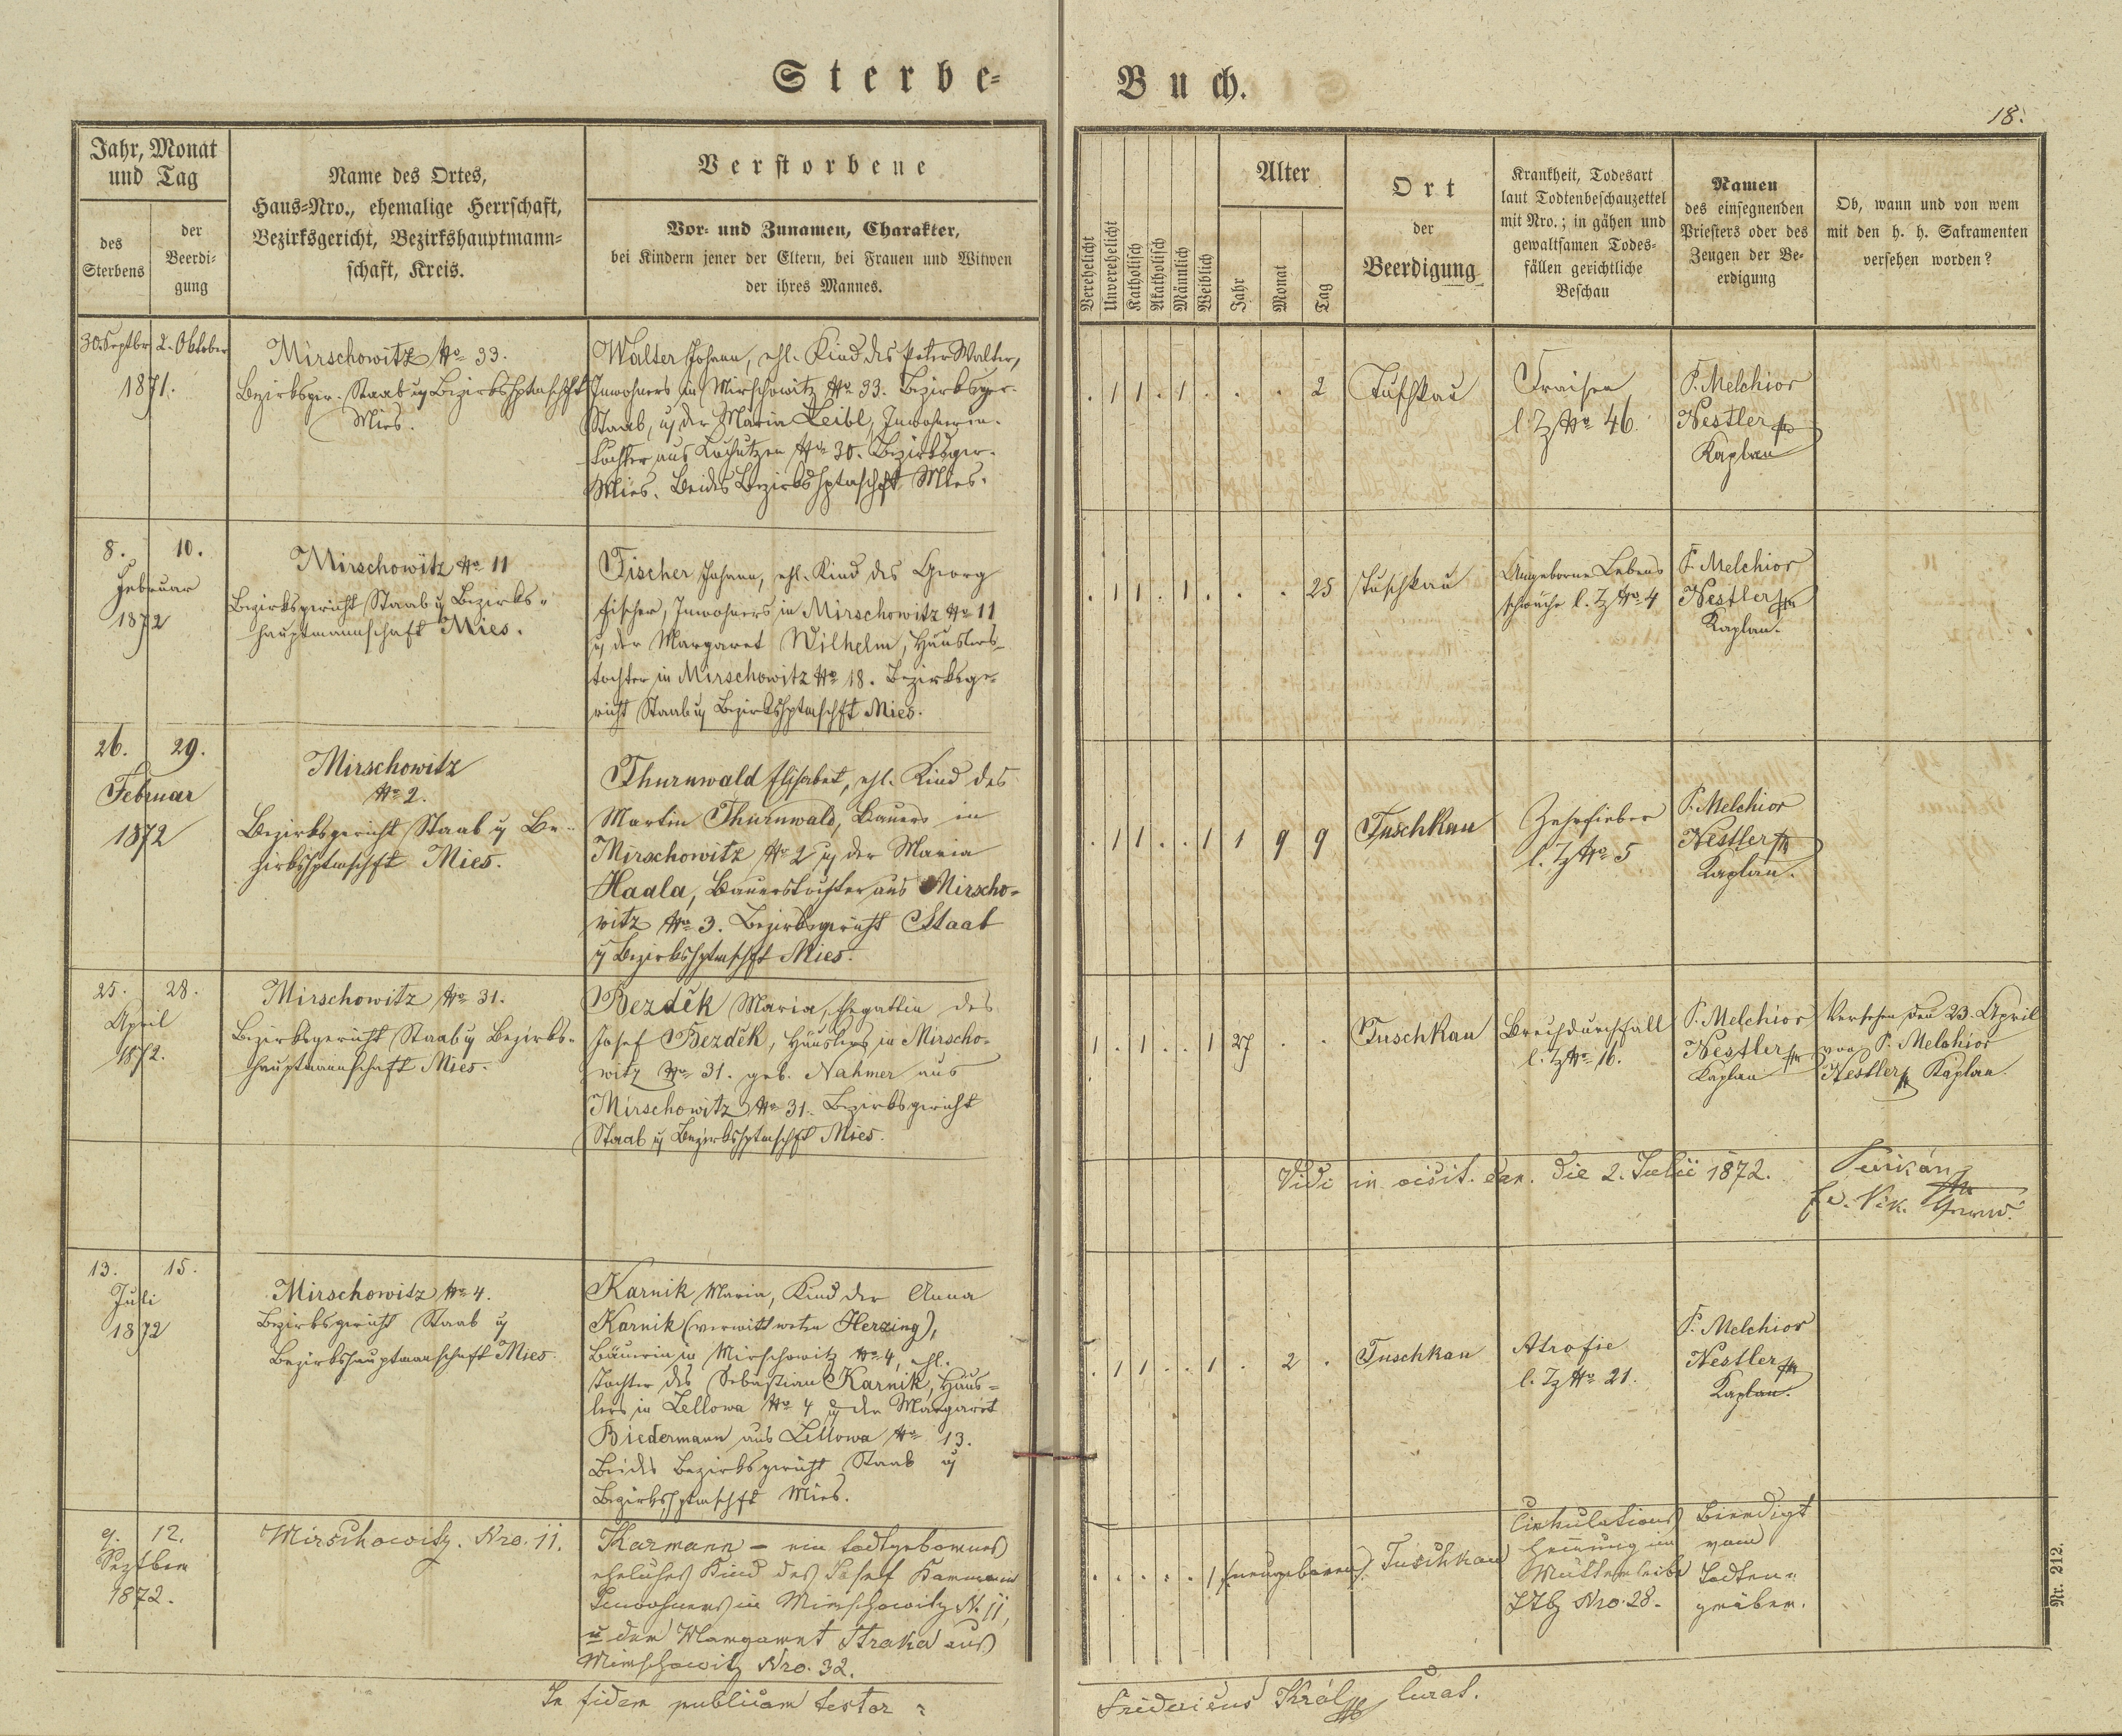 Sterbe-
Buch.
18.
Jahr, Monat
und Tag
des
Sterbens
der
Beerdi-
gung
Name des Ortes,
Haus-Nro., ehemalige Herrschaft,
Bezirksgericht, Bezirkshauptmann-
schaft, Kreis.
Verstorbene
Vor- und Zunamen, Charakter,
bei Kindern jener der Eltern, bei Frauen und Witwen
der ihres Mannes.
Verehelicht
Unverehelicht
Katholisch
Akatholisch
Männlich
Weiblich
Alter
Jahr
Monat
Tag
Ort
der
Beerdigung
Krankheit, Todesart
laut Todtenbeschauzettel
mit Nro.; in gähen und
gewaltsamen Todes-
fällen gerichtliche
Beschau
Namen
des einsegnenden
Priesters oder des
Zeugen der Be-
erdigung
Ob, wann und von wem
mit den h. h. Sakramenten
versehen worden?
30. Septbr 2. Oktober
1871.
Mirschowitz No 33.
Bezirksger. Staab u Bezirkshptmschft
Mies.
Walter Johann, ehl. Kind des Peter Walter,
Inwohners in Mirschowitz No 33. Bezirksger.
Staab, u der Maria Leibl, Inwohners-
tochter aus No 30. Bezirksger.
Mies. Beides Bezirkshptmschft Mies.
. 1 1 . 1 . . . 2
Tuschkau
Fraisen
l. Z No 46.
P. Melchior
Nestler
Kaplan
8. 10.
Februar
1872
Mirschowitz No 11
Bezirksgericht Staab u Bezirks-
hauptmannschaft Mies.
Fischer Johann, ehl. Kind des Georg
Fischer, Inwohners in Mirschowitz No 11
u der Margaret Wilhelm, Häuslers-
tochter in Mirschowitz No 18. Bezirksge-
richt Staab u Bezirkshptmschft Mies.
. 1 1 . 1 . . . 25
Tuschkau
Angeborne Lebens
schwäche l. Z No 4
P. Melchior
Nestler
Kaplan.
26. 29.
Februar
1872
Mirschowitz
No 2.
Bezirksgericht Staab u Be-
zirkshptmschft Mies.
Thurnwald Elisabet, ehl. Kind des
Martin Thurnwald, Bauers in
Mirschowitz No 2 u der Maria
Haala, Bauerstochter aus Mirscho-
witz No 3. Bezirksgericht Staab
u Bezirkshptmschft Mies.
. 1 1 . . 1 1 9 9
Tuschkau
Zehrfieber
l. Z No 5
P. Melchior
Nestler
Kaplan.
25. 28.
April
1872.
Mirschowitz No 31.
Bezirksgericht Staab u Bezirks-
hauptmannschaft Mies.
Bezděk Maria, Ehgattin des
Josef Bezděk, Häuslers in Mirscho-
witz No 31. geb. Nahmer aus
Mirschowitz No 31. Bezirksgericht
Staab u Bezirkshptmschft Mies.
1 . 1 . . 1 27 . .
Tuschkau
Brechdurchfall
l. Z No 16.
P. Melchior
Nestler
Kaplan
Versehen den 23. April
von P. Melchior
Nestler Kaplan.
Vidi in visit. can. die 2. Julii 1872.
13. 15.
Juli
1872
Mirschowitz No 4.
Bezirksgericht Staab u
Bezirkshauptmannschaft Mies.
Karnik Maria, Kind der Anna
Karnik (verwittweten Herzing),
Bäuerin in Mirschowitz No 4, ehl.
Tochter des Sebastian Karnik, Häus-
lers in Lellowa No 4 u der Margaret
Biedermann aus Lellowa No 13.
Beides Bezirksgericht Staab u
Bezirkshptmschft Mies.
. 1 1 . . 1 . 2 .
Tuschkau
Atrofie
l. Z No 21.
P. Melchior
Nestler
Kaplan.
9. 12.
Septber
1872.
Mirschowitz. Nro. 11.
Karmann – ein todtgebornes
eheliches Kind des Josef Karmann
Inwohners in Mirschowitz N. 11,
u der Margaret Straka aus
Mirschowitz Nro. 32.
. . . . . 1 (neugeboren)
Tuschkau
Cirkulations
hemung im
Mutterleibe
TZ Nro. 28.
Beerdigt
vom
Todten-
gräber.
In fidem publicam testor:
Fridericus Král Curat.
Nr. 212.